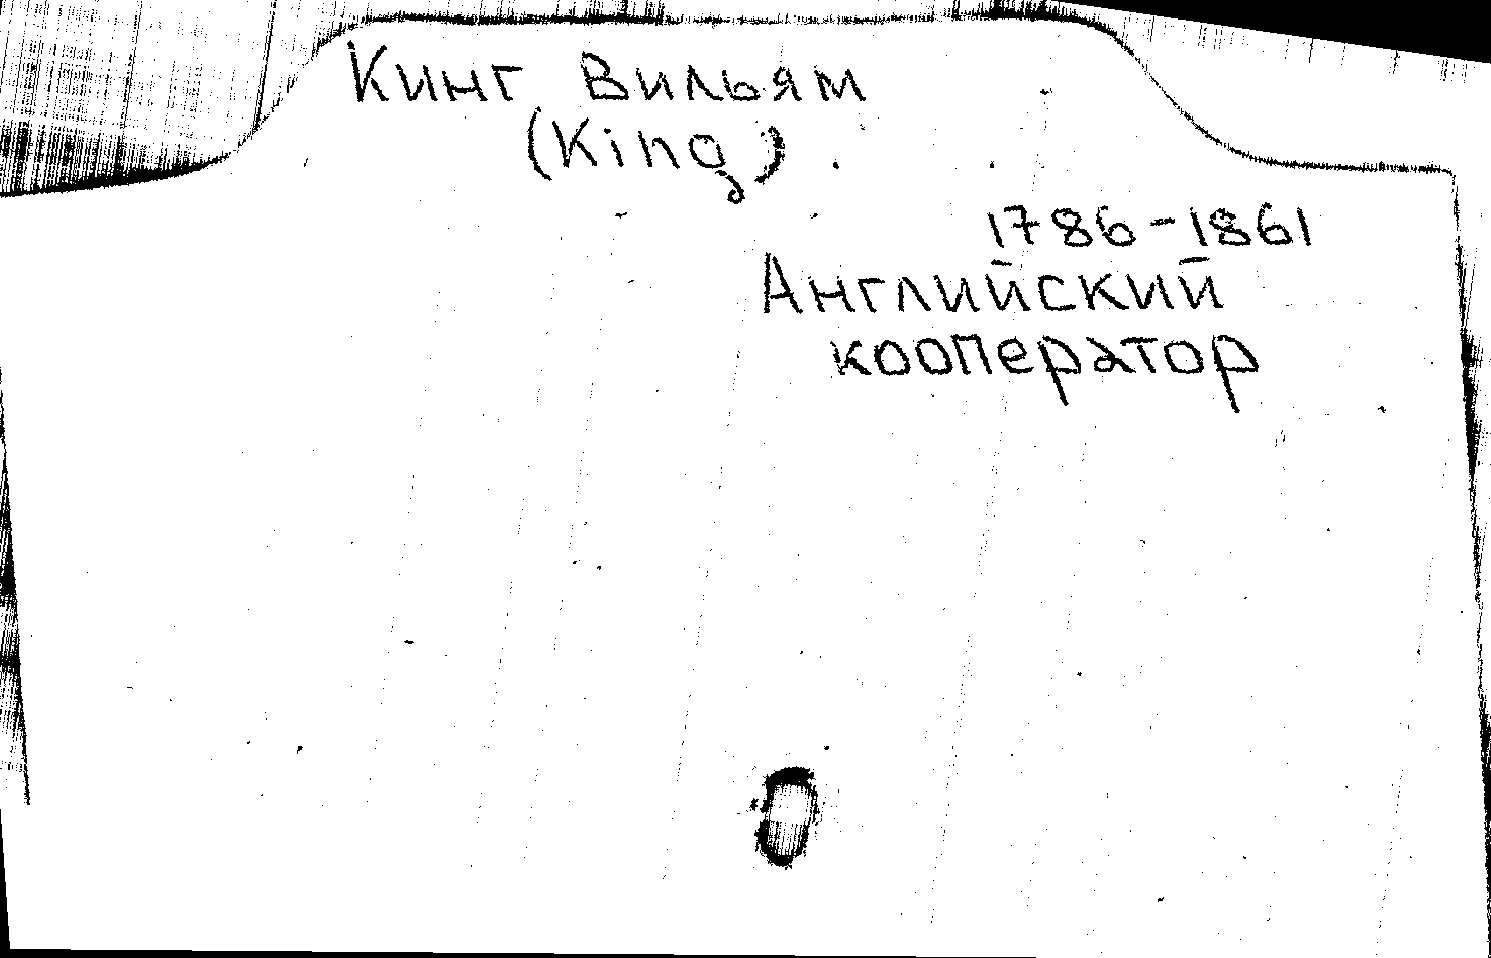 Кинг Вильям
(King)
1786-1861
Английский
кооператор